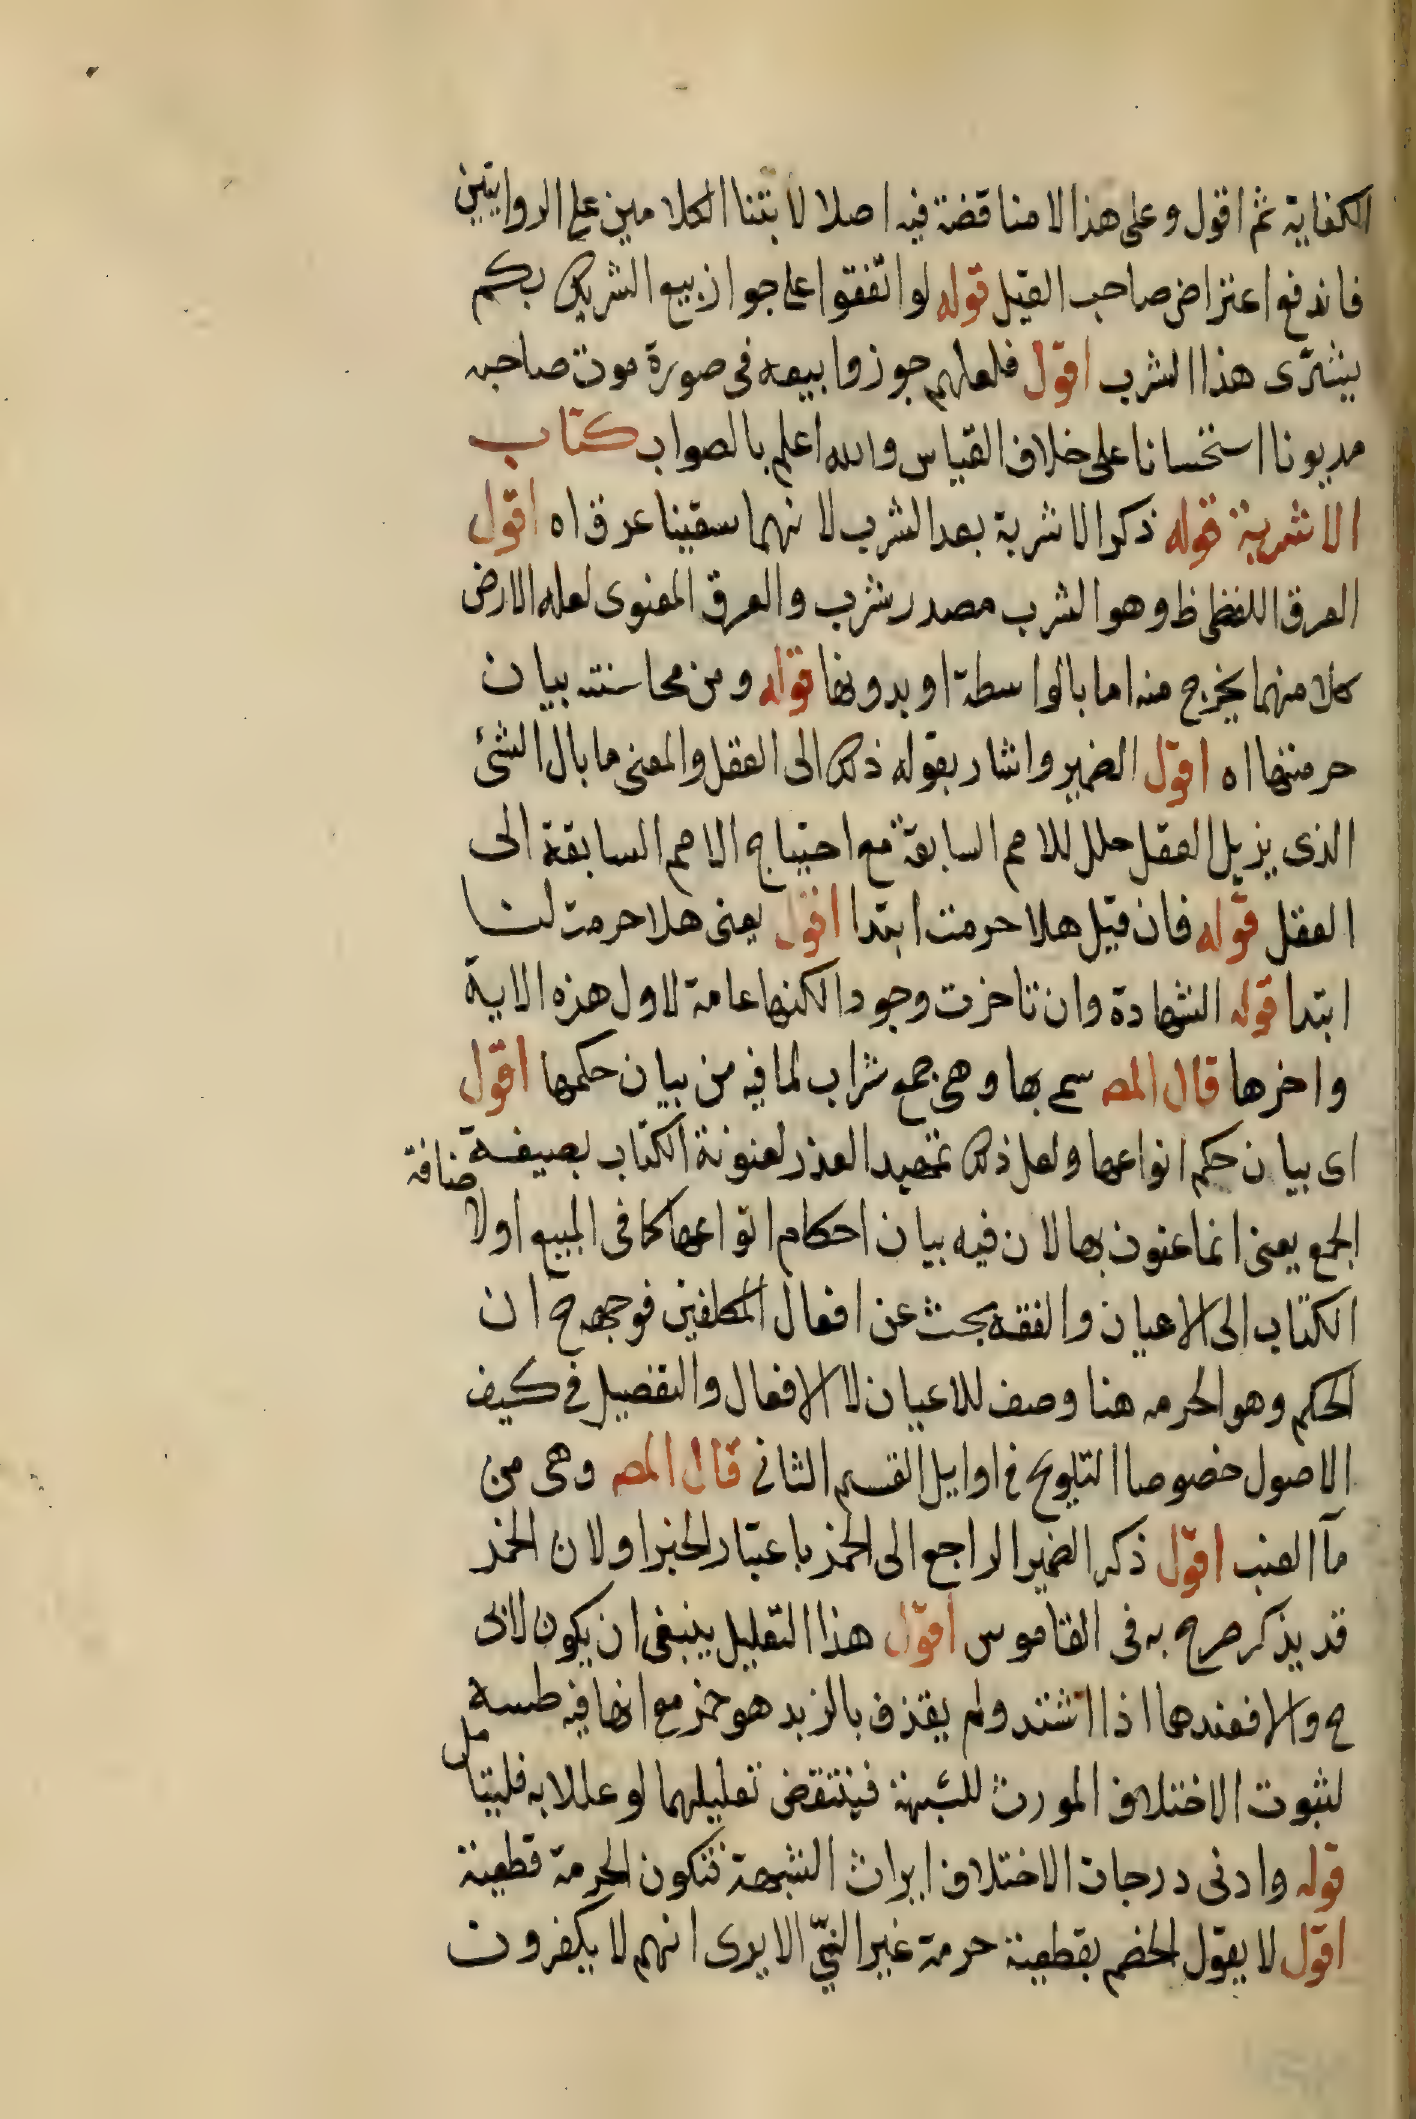 الكفاية ثم اقول وعلى هذا لا مناقضة فيه اصلا لابتنا الكلامين على الروايتين
فاندفع اعتراض صاحب القيل قوله لو اتفقوا على جواز بيع الشريك بكم
يشترى هذا الشرب اقول فلعلهم جوزوا بيعه فى صورة موت صاحبه
مديونا استحسانا على خلاف القياس والله اعلم بالصواب كتاب
الاشربة قوله ذكر الاشربة بعد الشرب لانهما سقينا عرق اه اقول
العرق اللفظى ظ وهو الشرب مصدر شرب والعرق المعنوى لعله الارض
كلا منهما يخرج منه اما بالواسطة او بدونها قوله ومن محاسنته بيان
حرمتها اه اقول الضمير واشار بقوله ذلك الى العقل والمعنى ما بال الشئ
الذى يزيل العقل حلل للامم السابقة مع احتياج الامم السابقة الى
العقل قوله فان قيل هلا حرمت ابتدا اقول يعنى هلا حرمت لنا
ابتدا قوله الشهادة وان تاخرت وجودا لكنها عامة لاول هذه الاية
واخرها قال المص سمى بها وهى جمع شراب لما فيه من بيان حكمها اقول
اى بيان حكم انواعها ولعل ذلك تمهيد العذر لعنونة الكتاب بصيغة
الجمع يعنى انما عنون بها لان فيه بيان احكام انواعها كما فى البيع اولاضافة
الكتاب الى الاعيان والفقه بحث عن افعال المكلفين فوجهه ح ان
الحكم وهو الحرمه هنا وصف للاعيان لا الافعال والتفصيل فى كيف
الاصول خصوصا التلويح فى اوايل القسم الثانى قال المص وهى من
مآ العنب اقول ذكر الضمير الراجع الى الخمر باعتبار الخبر اولان الخمر
قد يذكر صرح به فى القاموس اقول هذا التعليل ينبغى ان يكون لانى
ح والا فعندها اذا اشتد ولم يقذف بالزبد هو خمر مع انها فيه ظنية
لثبوت الاختلاف المورث للشبهة فينتقض تعليلهما لو عللا به فليتامل
قوله وادنى درجات الاختلاف ايراث الشبهة فتكون الحرمة قطعية
اقول لا يقول الخصم بقطعية حرمة غير النيّ الا يرى انهم لا يكفرون